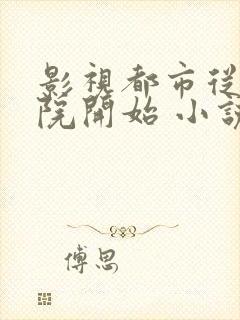 影視都市從
院開始 小說
傅思